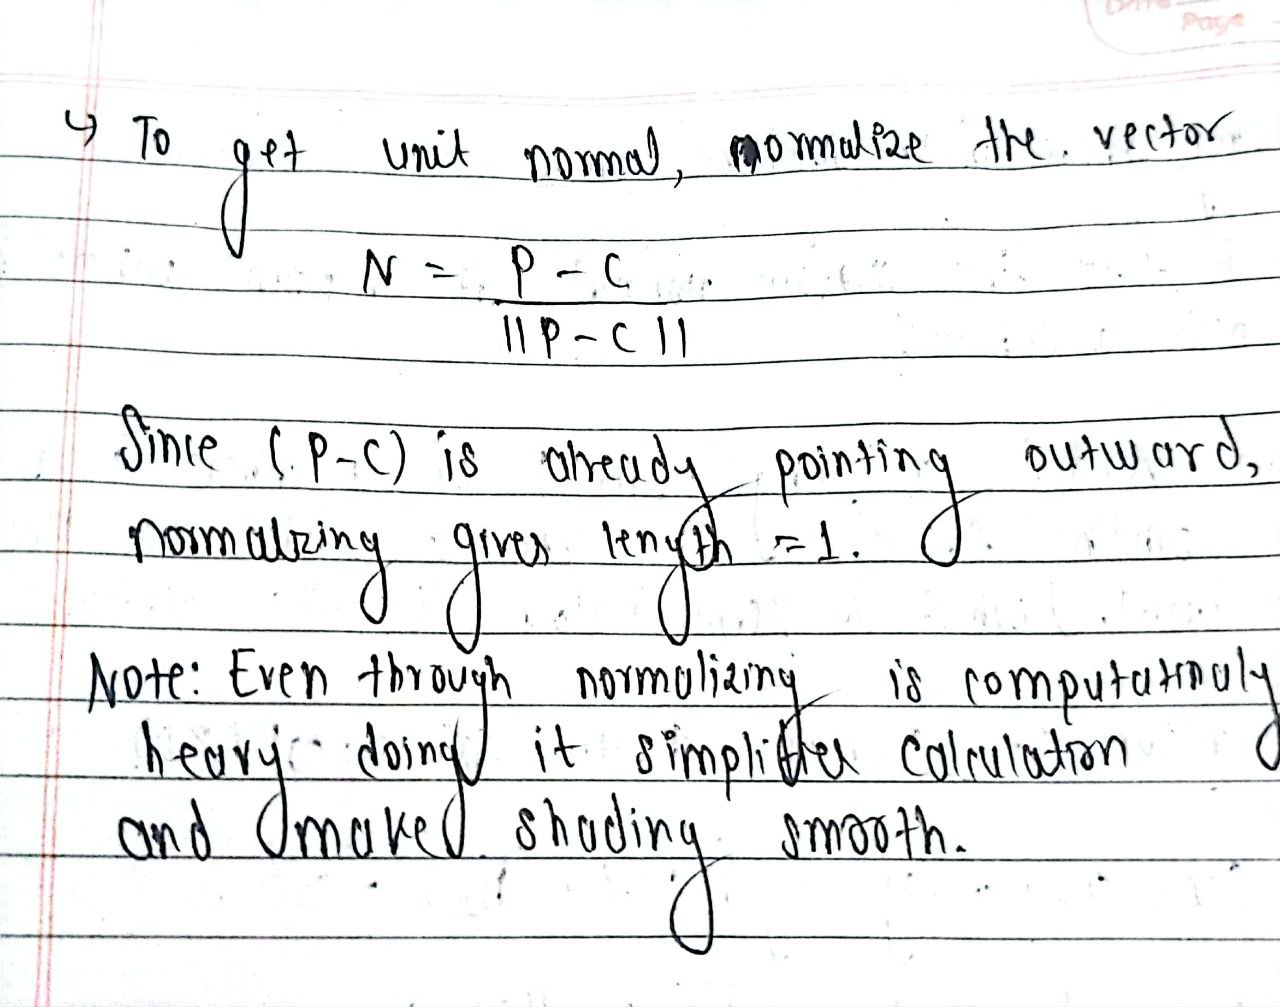 Date
Page
↳ To get unit normal, normalize the vector
N = P - C
||P - C||
Since (P-C) is already pointing outward,
normalizing gives length = 1.
Note: Even through normalizing is computationaly
heavy doing it simplifies calculation
and makes shading smooth.